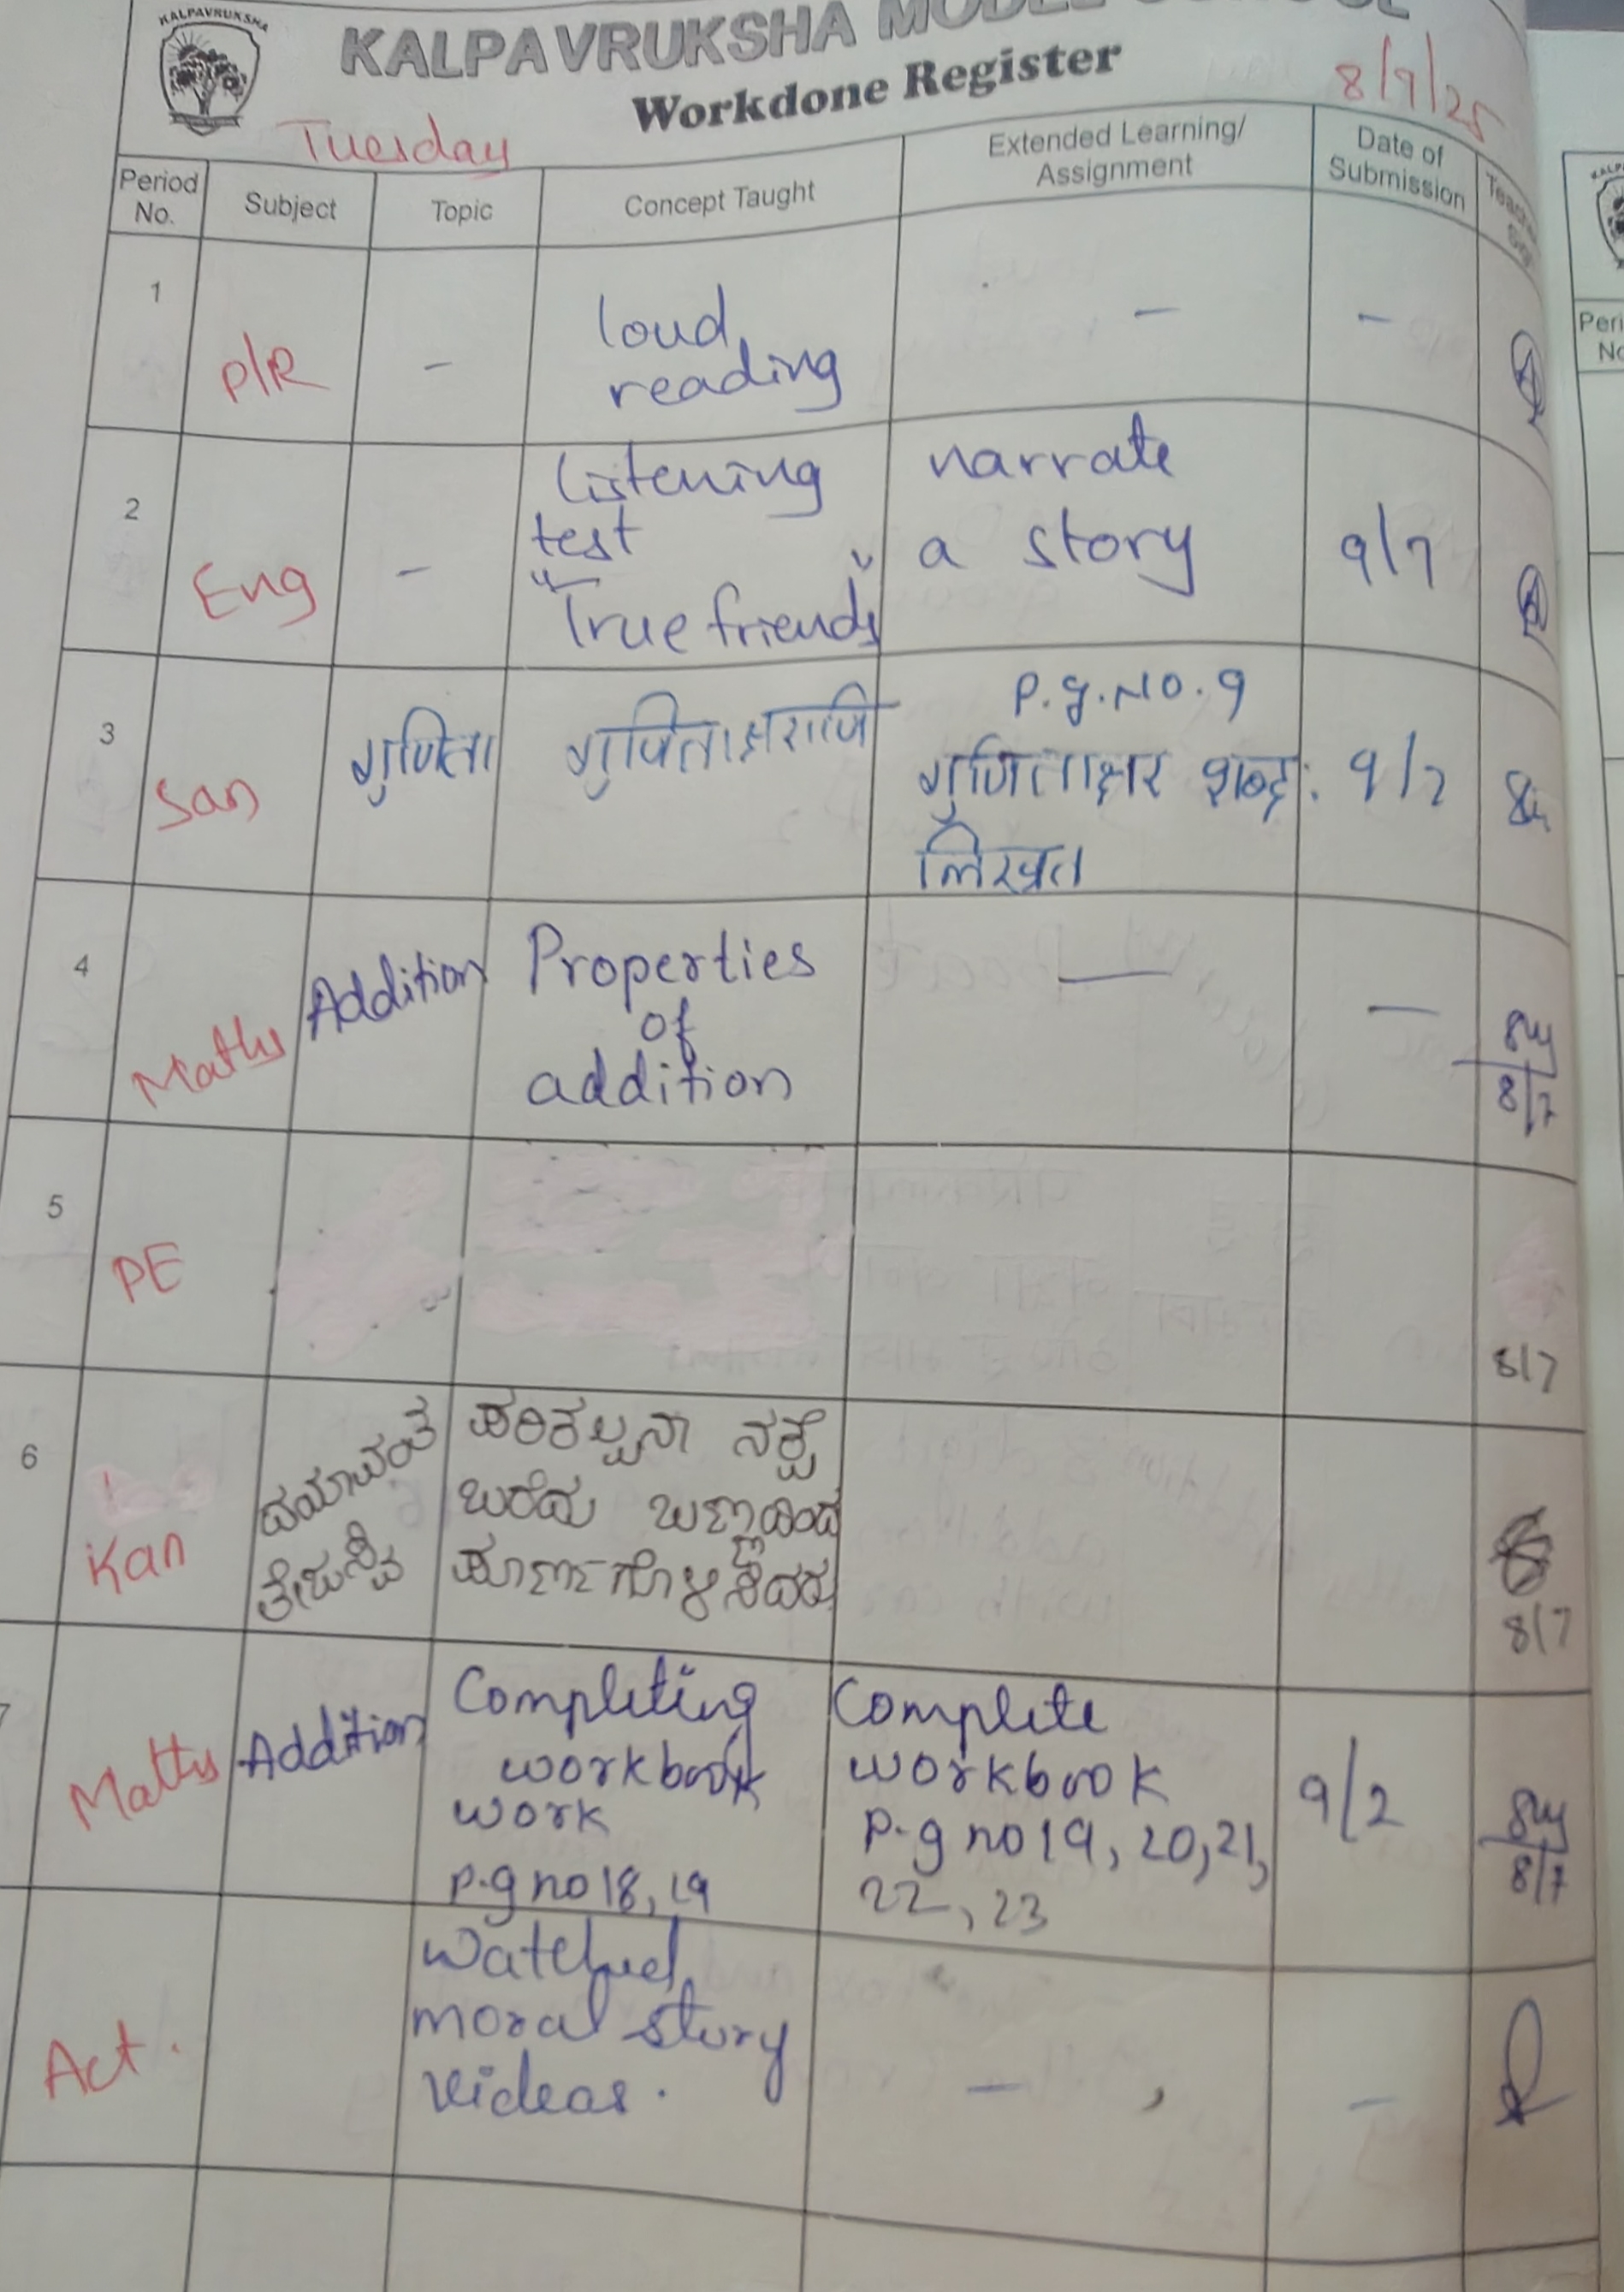 KALPAVRUKSHA
KALPAVRUKSHA MODEL SCHOOL
Workdone Register
8/7/25
Tuesday
Period No. Subject Topic Concept Taught Extended Learning/ Assignment Date of Submission
1 P/R - loud reading - -
2 Eng - Listening test "True friends" narrate a story 9/7
3 San गुणिता गुणिताक्षराणि P.g.No.9 गुणिताक्षर शब्द: लिखत 9/7
4 Maths Addition Properties of addition — —
8/7
5 PE
8/7
6 Kan ದಯಾವಂತೆ ತೇಜಸ್ವಿ ಪರಿಕಲ್ಪನಾ ನಕ್ಷೆ ಬರೆದು ಬಣ್ಣದಿಂದ
8/7
7 Maths Addition Completing workbook work p.g no 18, 19 Complete workbook p.g no 19, 20, 21, 22, 23 9/2
8/7
Act. Watched moral story videos. - -
Peri
No